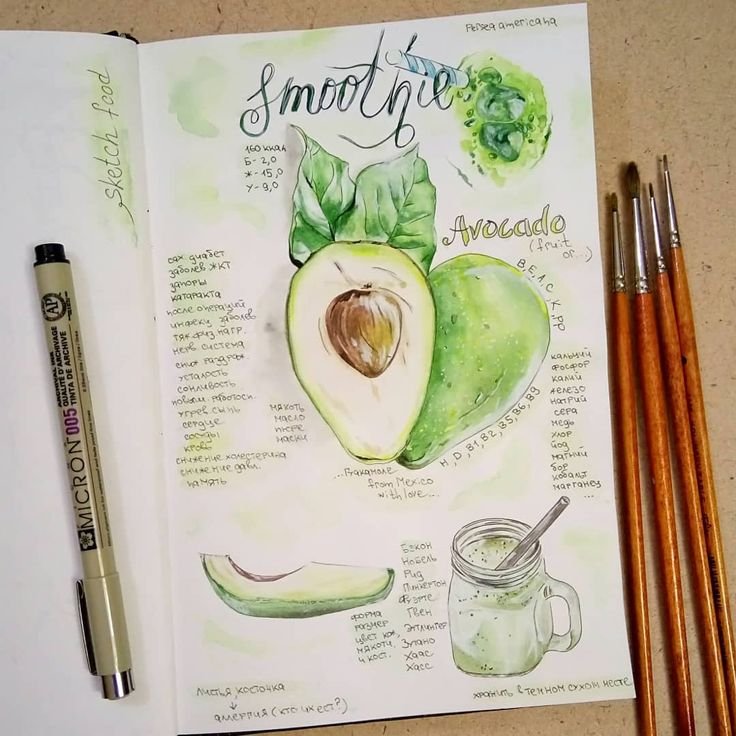 Persea americana
Smoothie
sketch food
160 ккал
Б- 2,0
Ж- 15,0
У- 9,0
Avocado
(fruit
or...)
B, E, A, C, K, PP
H, D, B1, B2, B5, B6, B9
сах. диабет
заболев. ЖКТ
запоры
катаракта
после операций
инфекц. заболев
тяж. физ. нагр.
нерв. система
сниж. раздраж.
усталость
сонливость
повыш. работосп.
угрев. сыпь
сердце
сосуды
кровь
снижение холестерина
снижение давл.
память
мякоть
масло
пюре
маски
кальций
фосфор
калий
железо
натрий
сера
медь
хлор
йод
магний
бор
кобальт
марганец
...
...Гвакамоле
from Mexico
with love...
Бэкон
Нобель
Рид
Пинкертон
Фуэрте
Гвен
Этлингер
Зутано
Хаас
Хасс
форма
размер
цвет кож,
мякоти,
и кост.
листья, косточка
↓
аллергия (кто их ест?)
хранить в темном сухом месте
MICRON 005
AP
ARCHIVAL INK
QUALITÉ D'ARCHIVAGE
TINTA DE ARCHIVE